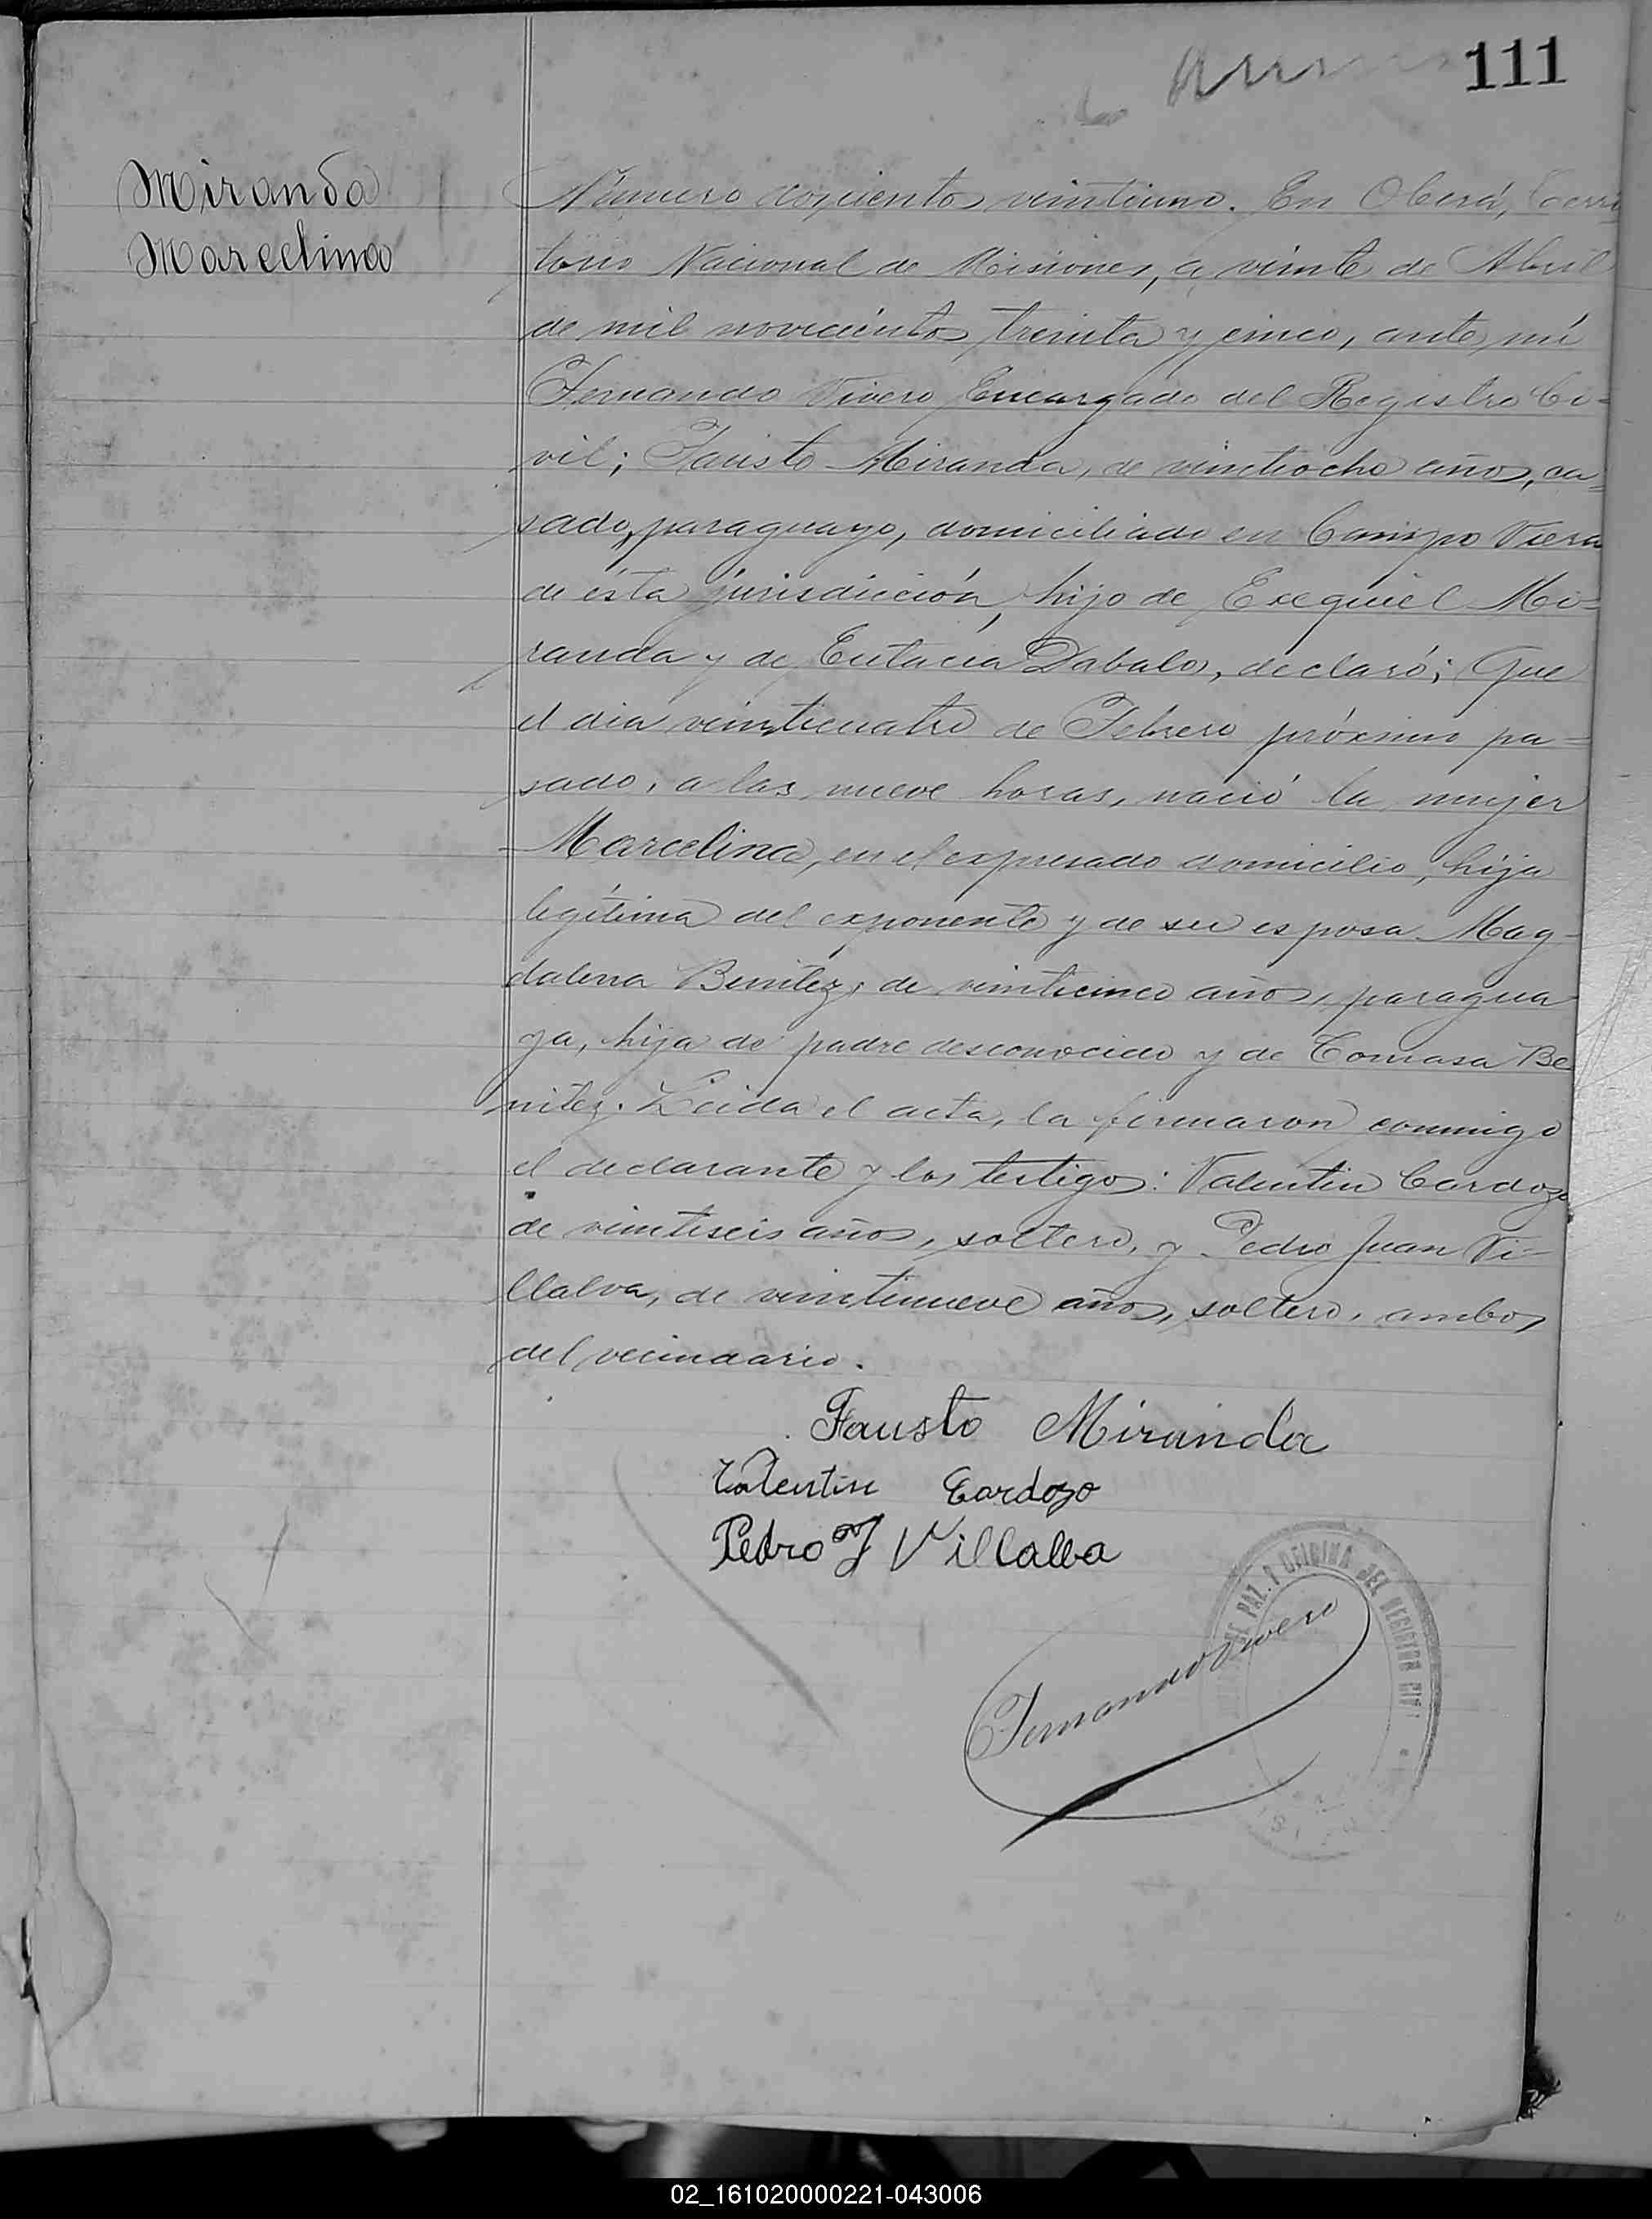 111
Miranda
Marcelina
Número doscientos veintiuno. En Oberá, Terri
torio Nacional de Misiones, a veinte de Abril
de mil novecientos treinta y cinco, ante mí
Fernando Vivero Encargado del Registro Ci-
vil; Fausto Miranda, de veintiocho años, ca-
sado, paraguayo, domiciliado en Campo Viera
de ésta jurisdicción, hijo de Exequiel Mi-
randa y de Eutacia Dabalos, declaró; Que
el dia veinticuatro de Febrero próximo pa-
sado, a las nueve horas, nació la mujer
Marcelina, en el expresado domicilio, hija
legítima del exponente y de su esposa Mag-
dalena Benitez, de veinticinco años, paragua
ya, hija de padre desconocido y de Tomasa Be
nitez. Leida el acta, la firmaron conmigo
el declarante y los testigos: Valentin Cardozo
de veintiseis años, soltero, y Pedro Juan Vi-
llalva, de veintinueve años, soltero, ambos
del vecindario.
Fausto Miranda
Valentin Cardozo
Pedro J Villalba
DE PAZ. Y OFICINA DEL REGISTRO CIVI
Fernando Vivero
02_161020000221-043006